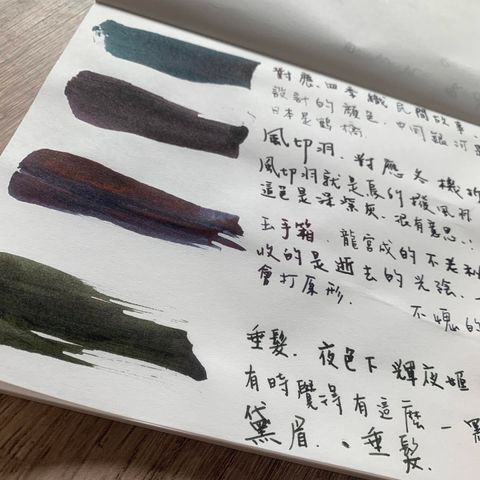 對應四季織民間故事、
設計的顏色.中間銀河
日本是鶴橋
風切羽.對應冬機
風切羽就是鳥的撥風羽
這色是深紫灰.很有意思.
玉手箱.龍宮城的不老
收的是逝去的光陰.
會打原形. 不愧的
垂髮.夜色下輝夜姬
有時覺得有這麼一
黛眉.、垂髮.